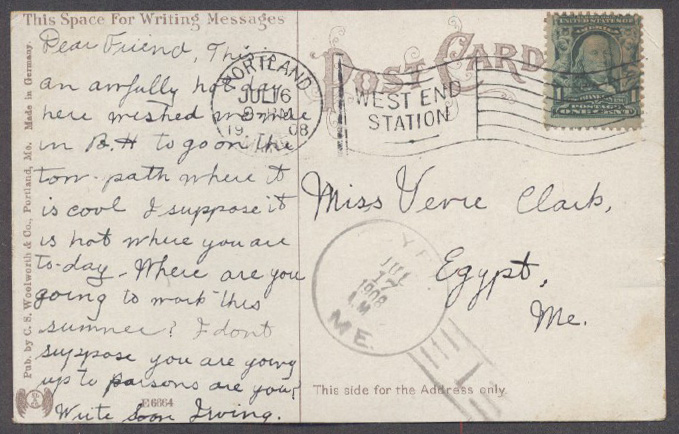 This Space For Writing Messages
Dear Friend, This is
an awfully hot day
here wished I were
in B.H to go on the
tow-path where it
is cool I suppose it
is hot where you are
to-day. Where are you
going to work this
summer? I dont
suppose you are going
up to Parsons are you?
Write Soon Irving.
Pub. by C. S. Woolworth & Co., Portland, Me. Made in Germany.
E 6664
POST CARD
PORTLAND
JUL 16
19 08
WEST END
STATION
UNITED STATES OF
AMERICA
POSTAGE
ONE CENT
Miss Verie Clark,
Egypt,
Me.
JUL
17
1908
ME.
This side for the Address only